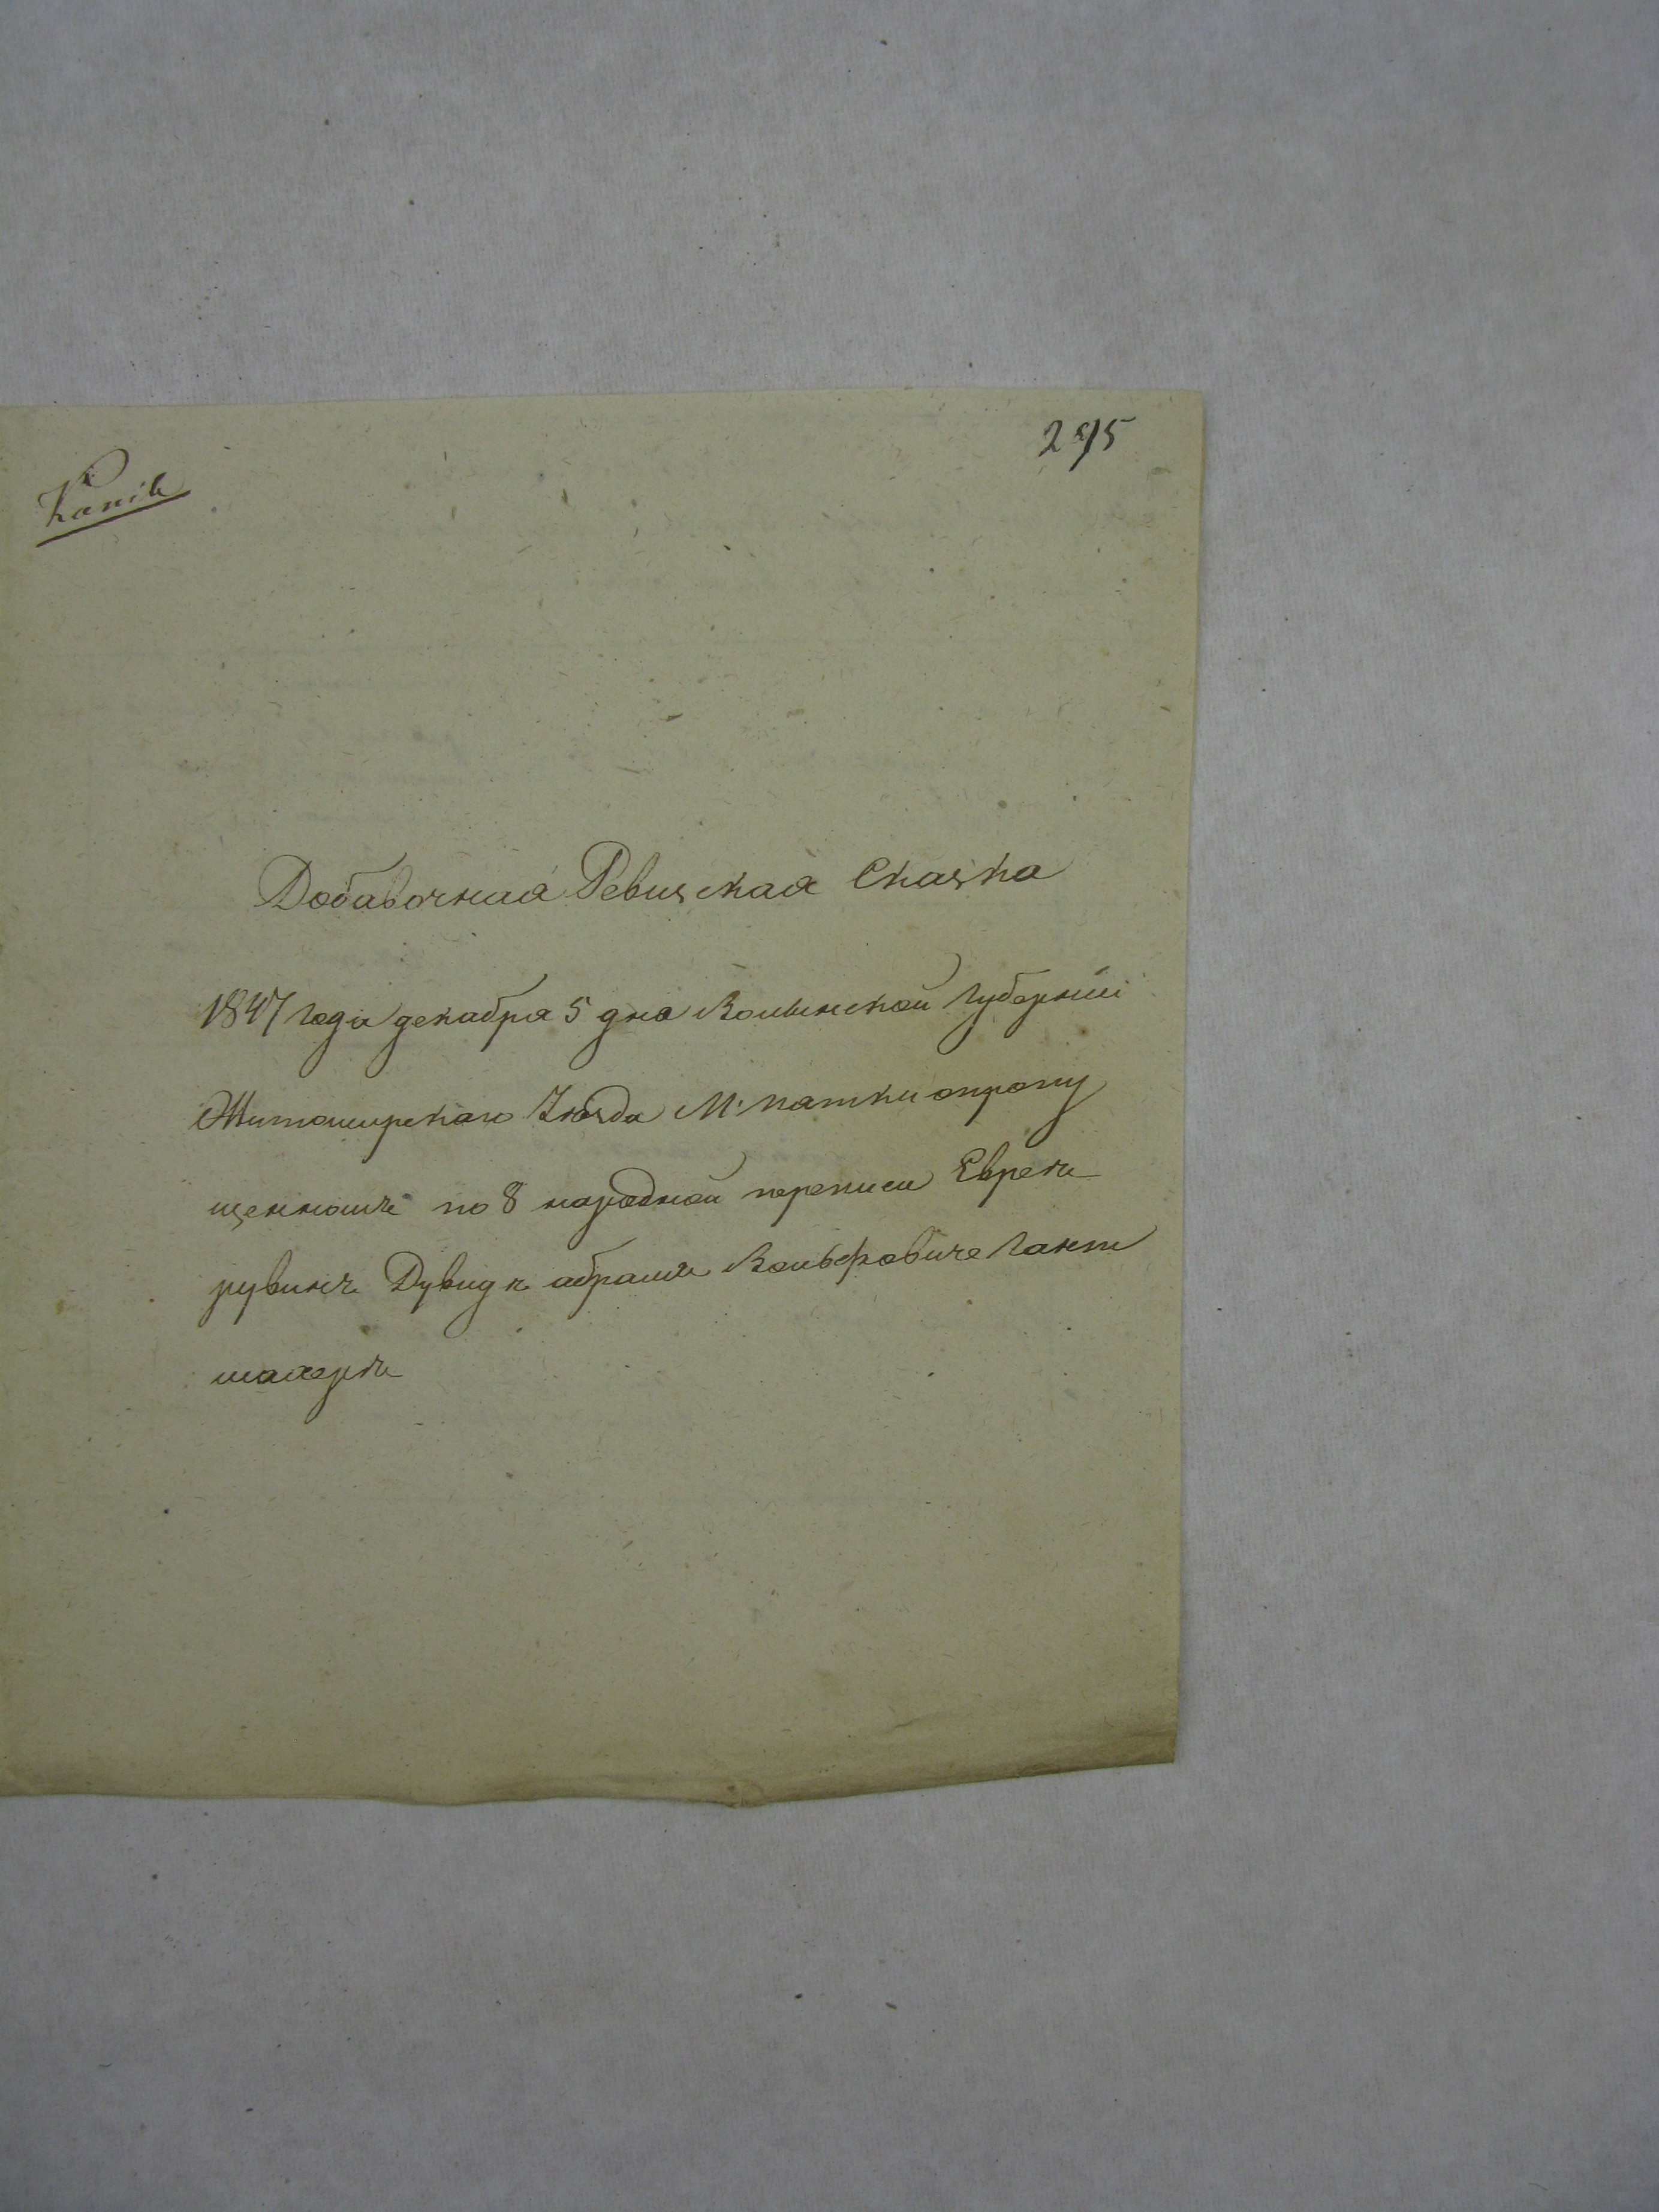 295
Копія
Добавочная Ревизская Сказка
1847 года декабря 5 дня Волынской Губерніи
Житомирскаго Уезда М. опропу
щенномъ по 8 народной переписи Евреи
рувинъ Дувидъ абрамъ Вольфовиче Гант
махеръ